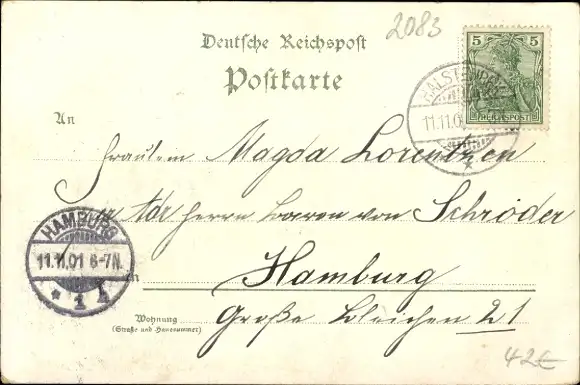 2083
Deutsche Reichspost
Postkarte
5 5
REICHSPOST
HALSTENBEK
11.11.0
An
Fräulein Magda Lorentzen
Adr Herrn Baron von Schröder
HAMBURG
11.11.01 6-7N.
* 1 *
in Hamburg
Wohnung
(Straße und Hausnummer)
Große Bleichen 21
42€